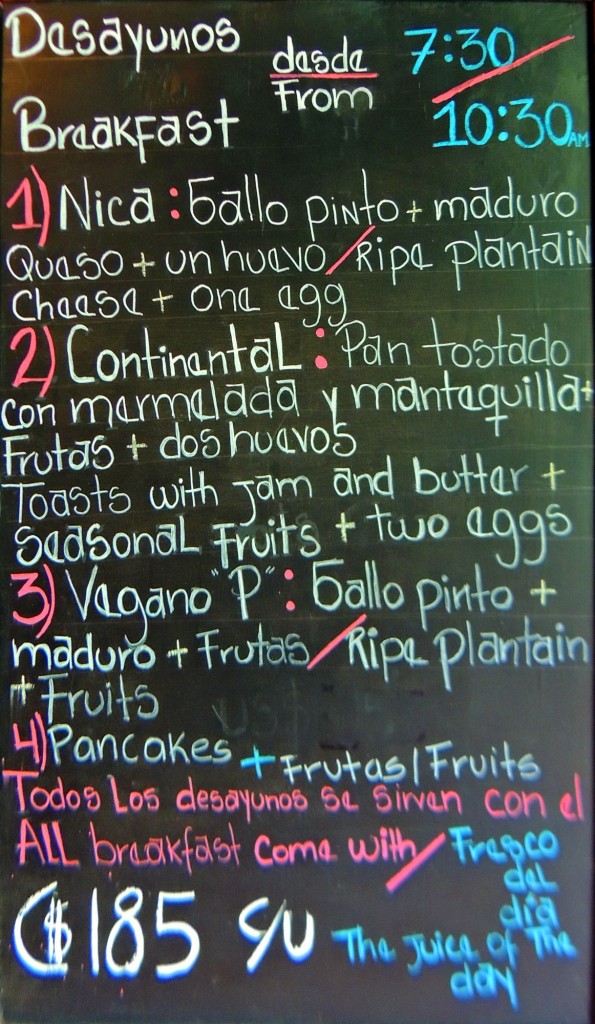 Desayunos
desde 7:30
From
Breakfast 10:30 AM
1) Nica : Gallo pinto + maduro
Queso + un huevo / Ripe plantain
Cheese + one egg
2) Continental : Pan tostado
con mermelada y mantequilla +
Frutas + dos huevos
Toasts with jam and butter +
seasonal fruits + two eggs
3) Vegano "P" : Gallo pinto +
maduro + Frutas / Ripe plantain
+ Fruits
4) Pancakes + Frutas / Fruits
Todos Los desayunos se sirven con el
ALL breakfast come with / Fresco
del
día
C$ 185 c/u The juice of The
day